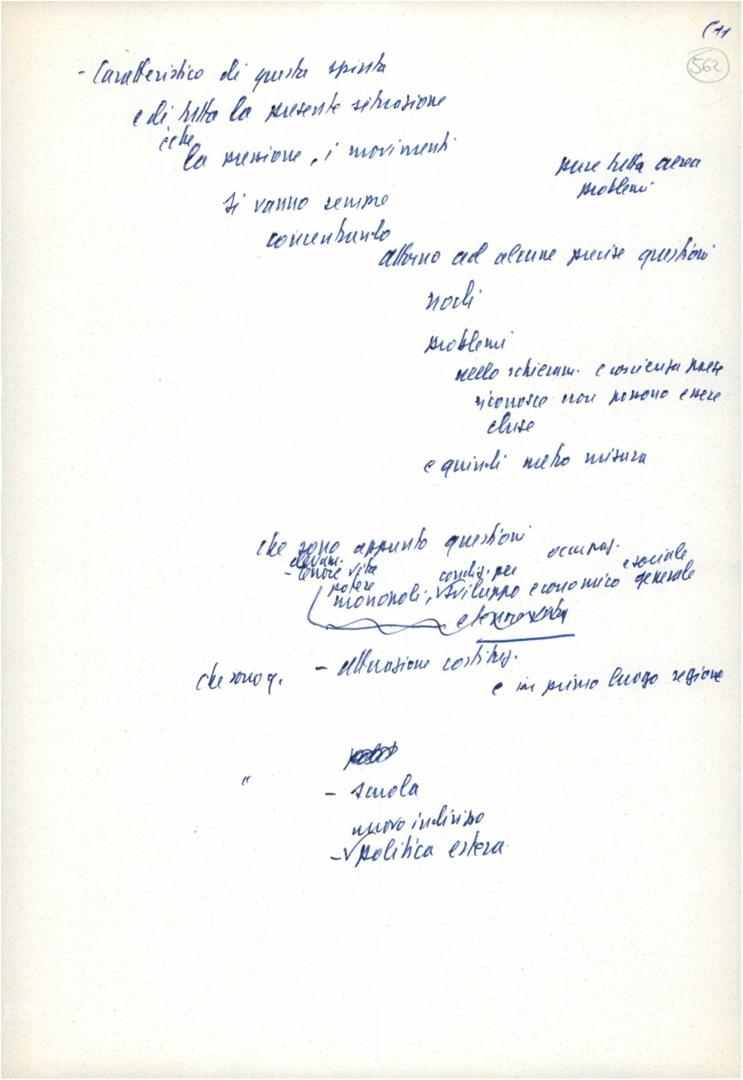 (11
562
- Caratteristico di questa spinta
e di tutta la presente situazione
è che
la pressione, i movimenti
pure tutta
problemi
si vanno sempre
concentrando
attorno ad alcune precise questioni
nodi
problemi
nello schieram. e coscienza paese
riconosce non possono essere
eluse
e quindi metro misura
che sono appunto questioni
elevam. occupaz.
- tenore vita condiz. per e sociale
potere
monopoli, sviluppo economico generale
che sono q. - attuazione costituz.
e in primo luogo regione
" - scuola
nuovo indirizzo
- politica estera